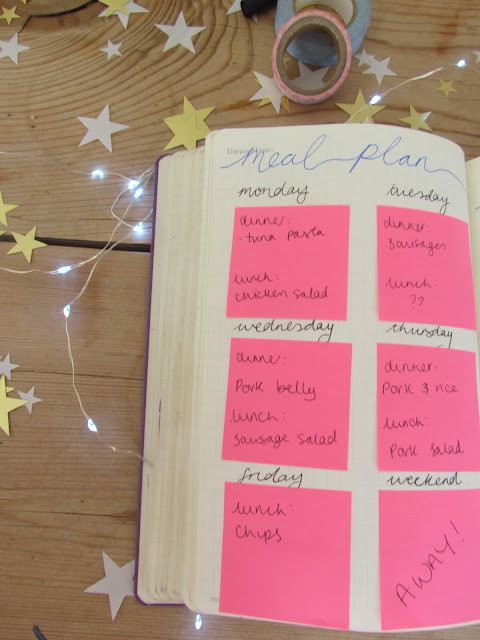 meal plan
monday
dinner:
- tuna pasta
lunch:
chicken salad
tuesday
dinner:
sausages
lunch:
??
wednesday
dinner:
Pork belly
lunch:
sausage salad
thursday
dinner:
Pork & rice
lunch:
Pork salad
friday
lunch:
chips
weekend
AWAY!